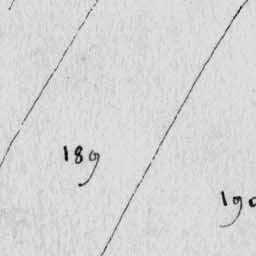 189
190